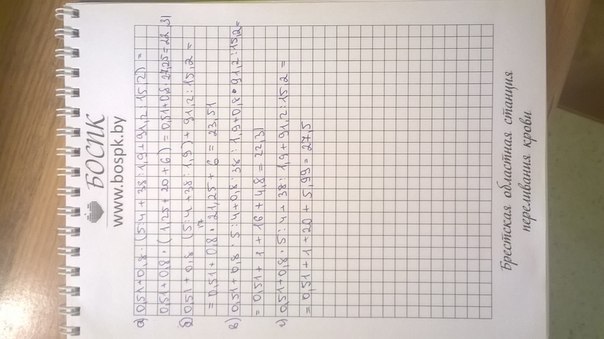 БОСПК
www.bospk.by
а) 0,51+0,8·(5:4+38:1,9+91,2:15,2)=
0,51+0,8·(1,25+20+6)=0,51+0,8·27,25=22,31
б) 0,51+0,8·(5:4+38:1,9)+91,2:15,2=
=0,51+0,8·21,25+6=23,51
17
в) 0,51+0,8·5:4+0,8·38:1,9+0,8·91,2:15,2=
=0,51+1+16+4,8=22,31
г) 0,51+0,8·5:4+38:1,9+91,2:15,2=
=0,51+1+20+5,99=27,5
Брестская областная станция
переливания крови